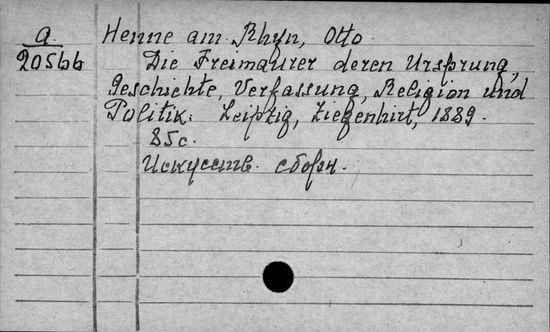 a.
20566
Henne am Rhyn, Otto.
Die Freimaurer deren Ursprung,
Geschichte, Verfassung, Religion und
Politik. Leipzig, Ziegenhirt, 1889.
85c.
Искусств. сборн.